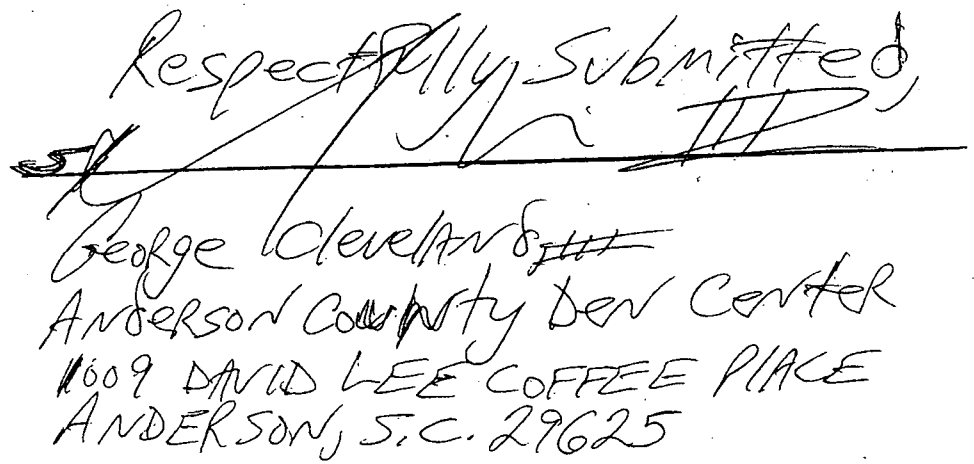 Respectfully Submitted,
S/ III
George Cleveland, III
Anderson County Den Center
1009 DAVID LEE COFFEE PLACE
ANDERSON, S.C. 29625